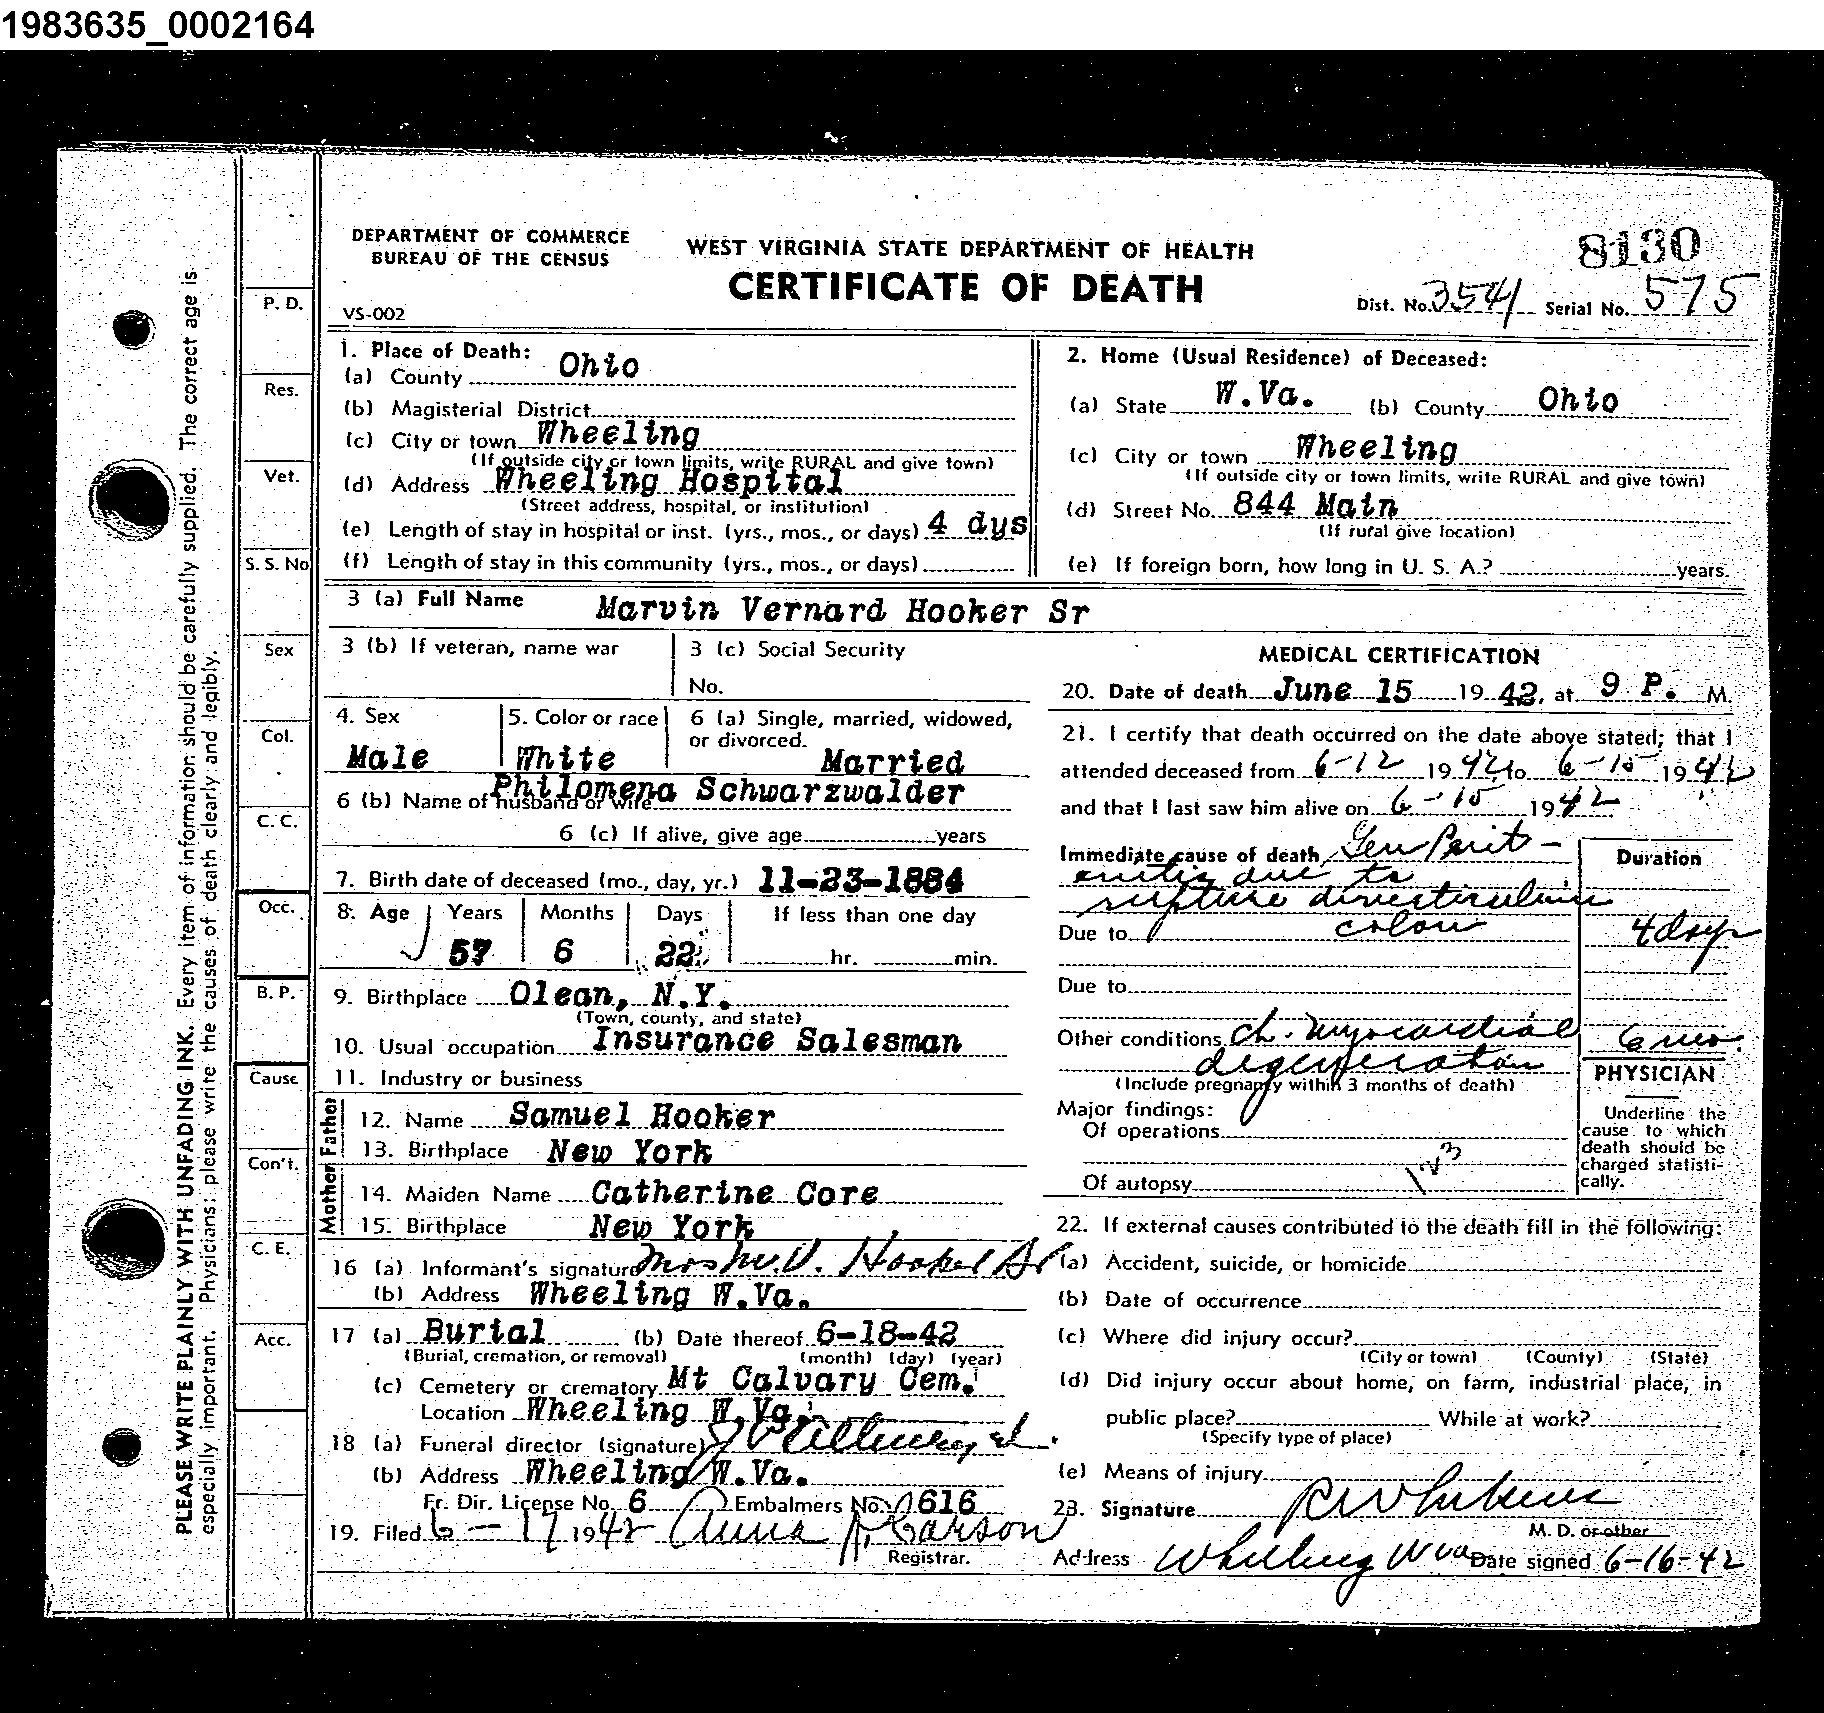 1983635_0002164
DEPARTMENT OF COMMERCE
BUREAU OF THE CENSUS
WEST VIRGINIA STATE DEPARTMENT OF HEALTH
CERTIFICATE OF DEATH
8130
VS-002
Dist. No. 3541 Serial No. 575
PLEASE WRITE PLAINLY WITH UNFADING INK. Every item of information should be carefully supplied. The correct age is
especially important. Physicians: please write the causes of death clearly and legibly.
P. D.
Res.
Vet.
S. S. No
Sex
Col.
C. C.
Occ.
B. P.
Cause
Con't.
C. E.
Acc.
1. Place of Death:
(a) County Ohio
(b) Magisterial District
(c) City or town Wheeling
(If outside city or town limits, write RURAL and give town)
(d) Address Wheeling Hospital
(Street address, hospital, or institution)
(e) Length of stay in hospital or inst. (yrs., mos., or days) 4 dys
(f) Length of stay in this community (yrs., mos., or days)
2. Home (Usual Residence) of Deceased:
(a) State W.Va. (b) County Ohio
(c) City or town Wheeling
(If outside city or town limits, write RURAL and give town)
(d) Street No. 844 Main
(If rural give location)
(e) If foreign born, how long in U. S. A.? years.
3 (a) Full Name Marvin Vernard Hooker Sr
3 (b) If veteran, name war
3 (c) Social Security
No.
4. Sex
Male
5. Color or race
White
6 (a) Single, married, widowed,
or divorced.
Married
6 (b) Name of husband or wife Philomena Schwarzwalder
6 (c) If alive, give age years
7. Birth date of deceased (mo., day, yr.) 11-23-1884
8. Age Years Months Days If less than one day
57 6 22 hr. min.
9. Birthplace Olean, N.Y.
(Town, county, and state)
10. Usual occupation Insurance Salesman
11. Industry or business
Father
12. Name Samuel Hooker
13. Birthplace New York
Mother
14. Maiden Name Catherine Core
15. Birthplace New York
16 (a) Informant's signature Mrs M. V. Hooker Sr
(b) Address Wheeling W.Va.
17 (a) Burial (b) Date thereof 6-18-42
(Burial, cremation, or removal) (month) (day) (year)
(c) Cemetery or crematory Mt Calvary Cem.
Location Wheeling W.Va.
18 (a) Funeral director (signature)
(b) Address Wheeling W.Va.
Fr. Dir. License No. 6 Embalmers No. 1616
19. Filed 6-17 1942 Anna A. Carson
Registrar.
MEDICAL CERTIFICATION
20. Date of death June 15 1942, at 9 P. M.
21. I certify that death occurred on the date above stated; that I
attended deceased from 6-12 1942 to 6-15 1942
and that I last saw him alive on 6-15 1942
Immediate cause of death Gen Perit-
onitis due to
rupture diverticulum
Due to colon
Duration
4 days
Due to
Other conditions Ch. myocardial
degeneration
6 mo.
(Include pregnancy within 3 months of death)
Major findings:
Of operations
Of autopsy
PHYSICIAN
Underline the
cause to which
death should be
charged statisti-
cally.
22. If external causes contributed to the death fill in the following:
(a) Accident, suicide, or homicide
(b) Date of occurrence
(c) Where did injury occur?
(City or town) (County) (State)
(d) Did injury occur about home, on farm, industrial place, in
public place? While at work?
(Specify type of place)
(e) Means of injury
23. Signature
M. D. or other
Address Wheeling W Va Date signed 6-16-42